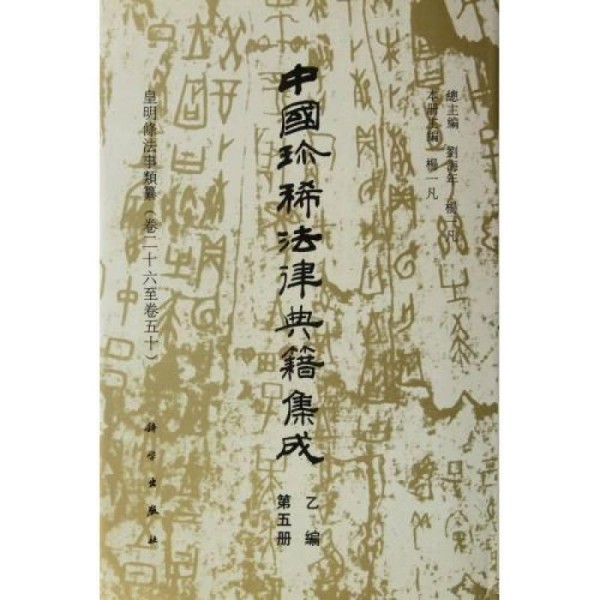 總主編 劉海年 楊一凡
本册主編 楊一凡
中國珍稀法律典籍集成
乙編
第五册
皇明條法事類纂(卷二十六至卷五十)
科学出版社